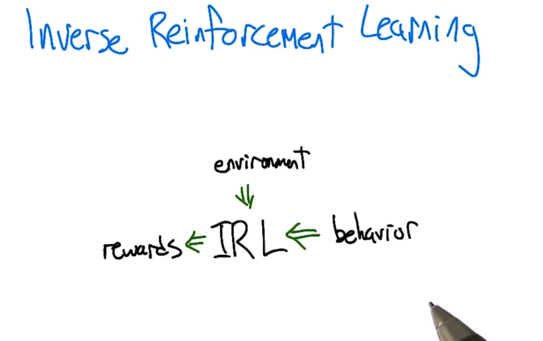 Inverse Reinforcement Learning
environment
rewards ⇐ IRL ⇐ behavior